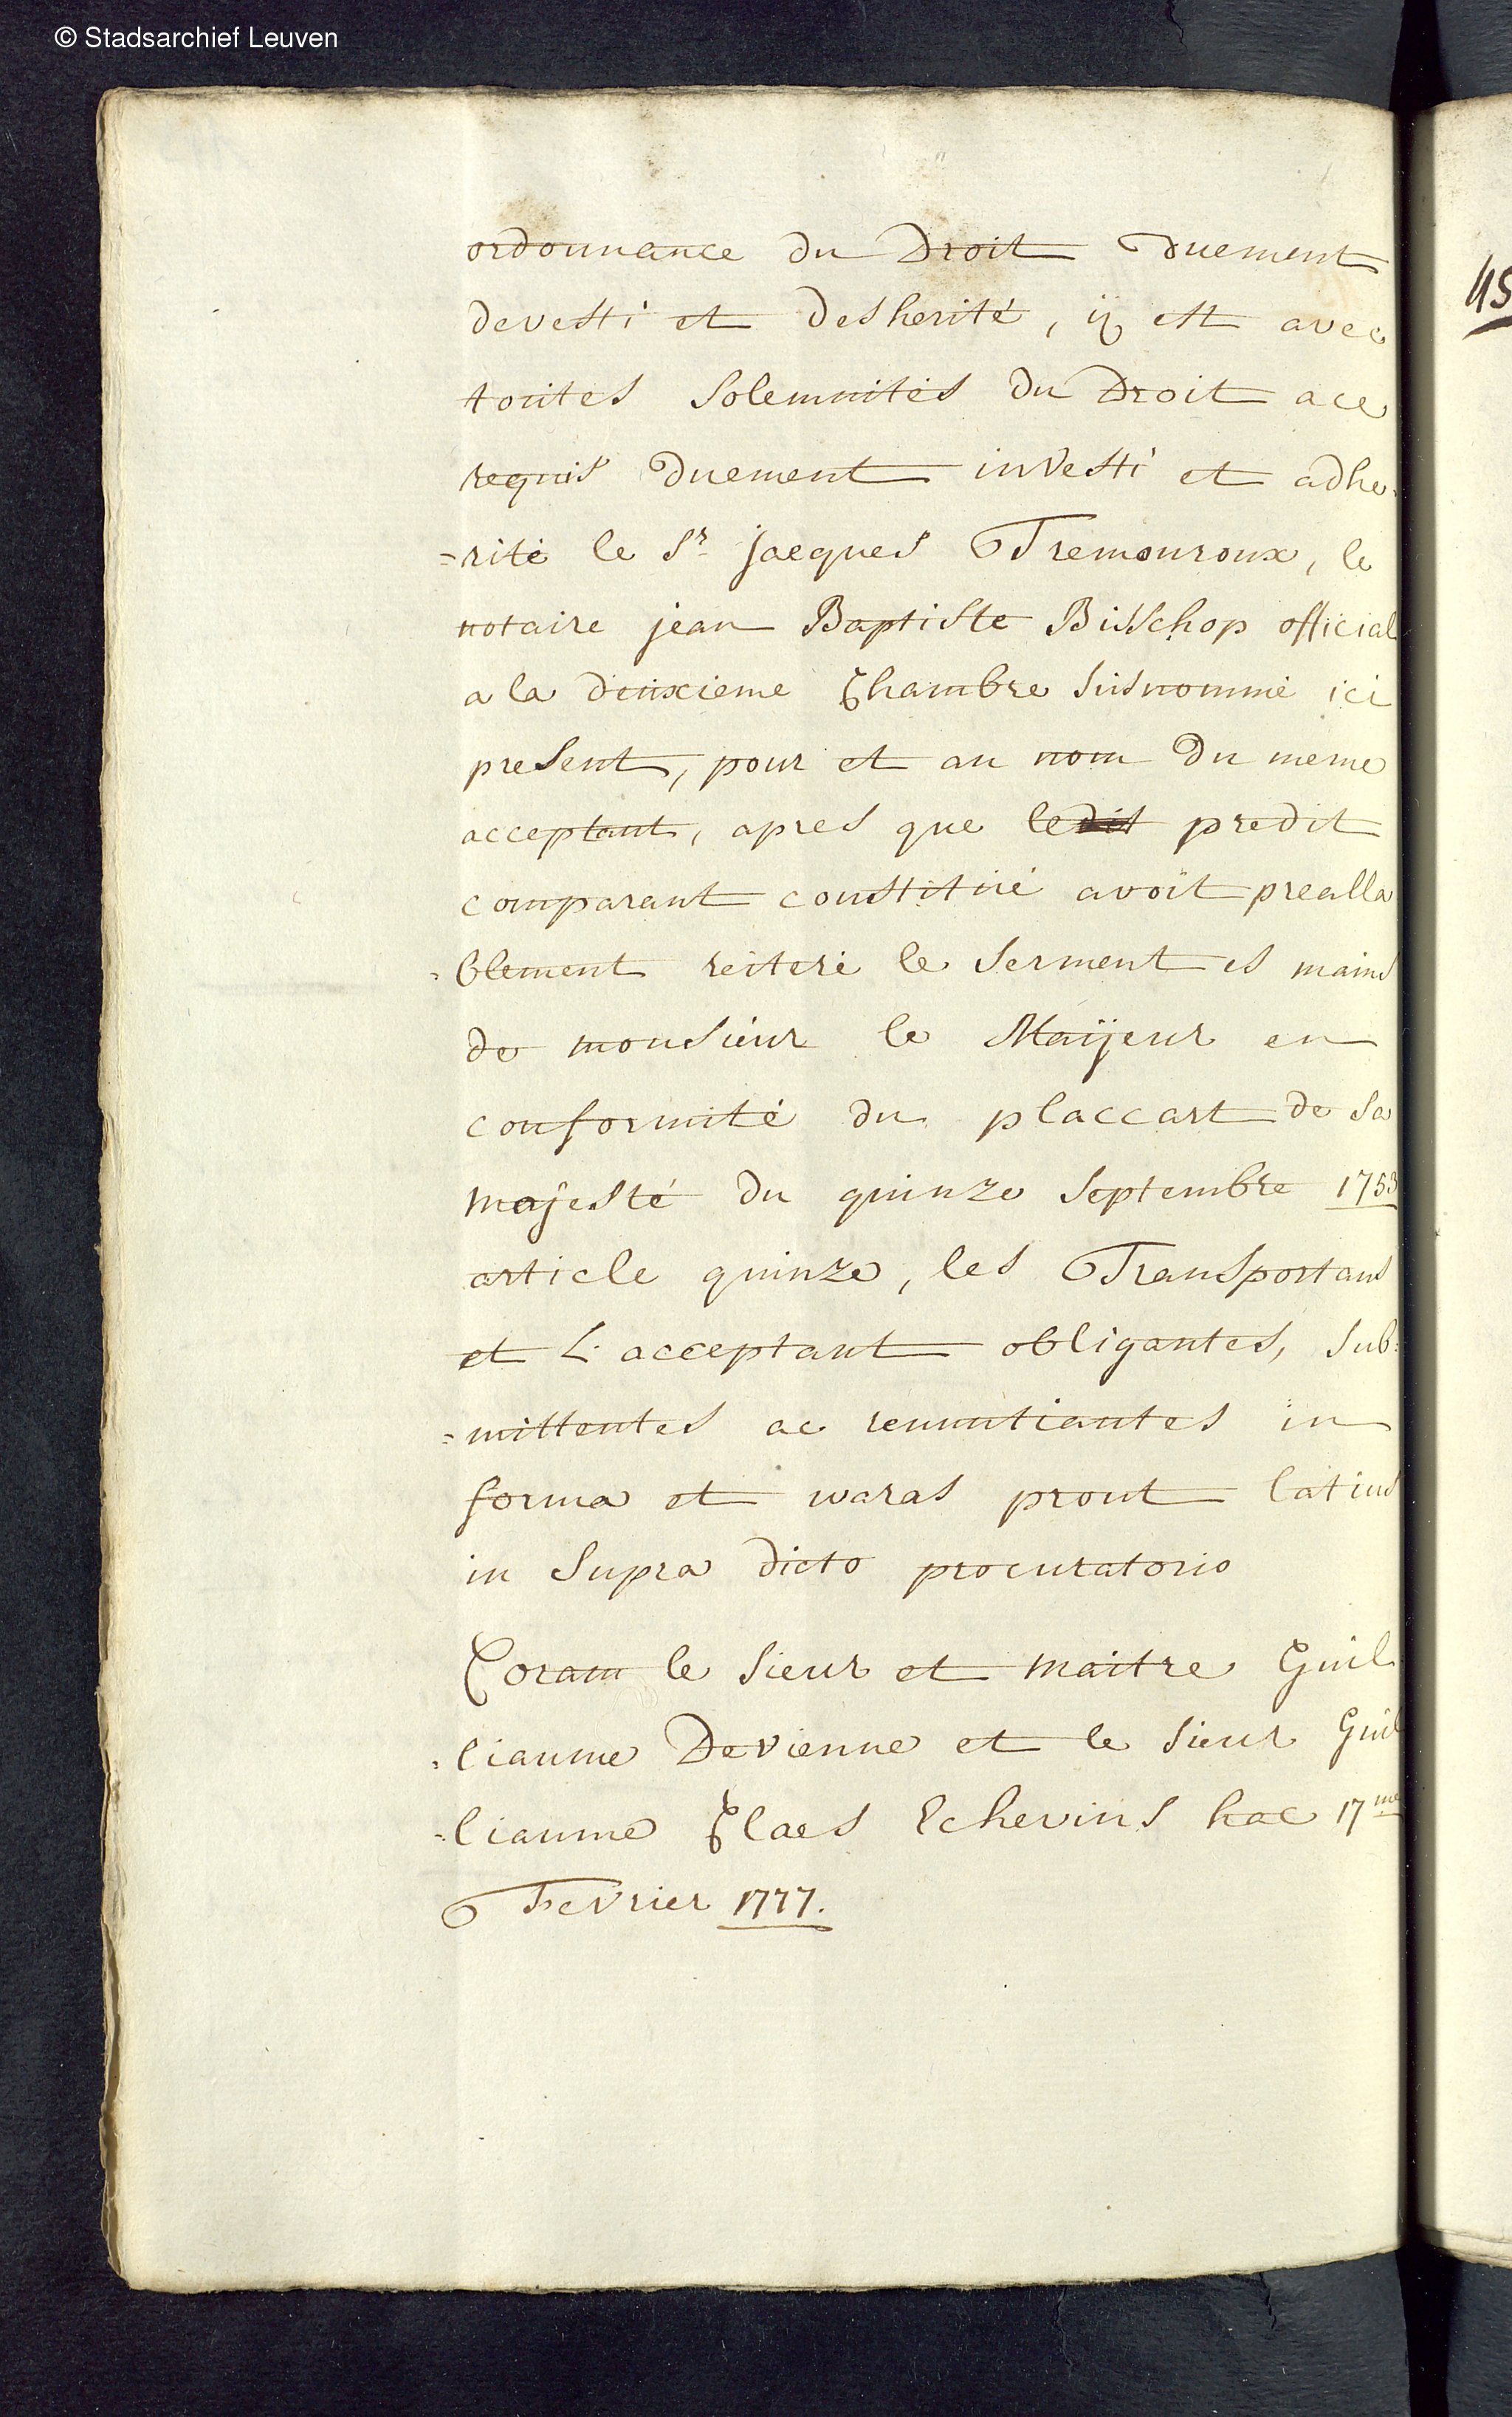 © Stadsarchief Leuven
ordonnance du Droit duement
devesti et desherité, ÿ est avec
toutes solemnités du Droit ace
requis duement investi et adhe-
=rité le Sr Jacques Tremouroux, le
notaire jean Baptiste Bisschop official
a la deuxieme Chambre susnommé ici
present, pour et au nom du meme
acceptant, apres que le predit
comparant constitué avoit prealla
=blement reiteré le serment es mains
de monsieur le Maÿeur en
conformité du placcart de sa
majesté du quinze septembre 1753
article quinze, les Transportans
et L'acceptant obligantes, sub=
=mittentes ac renuntiantes in
forma et waras prout latius
in supra dicto procuratorio
Coram le sieur et maitre Guil
=liaume Devienne et le sieur Guil
=liaume Claes Echevins hac 17me
Fevrier 1777.
45